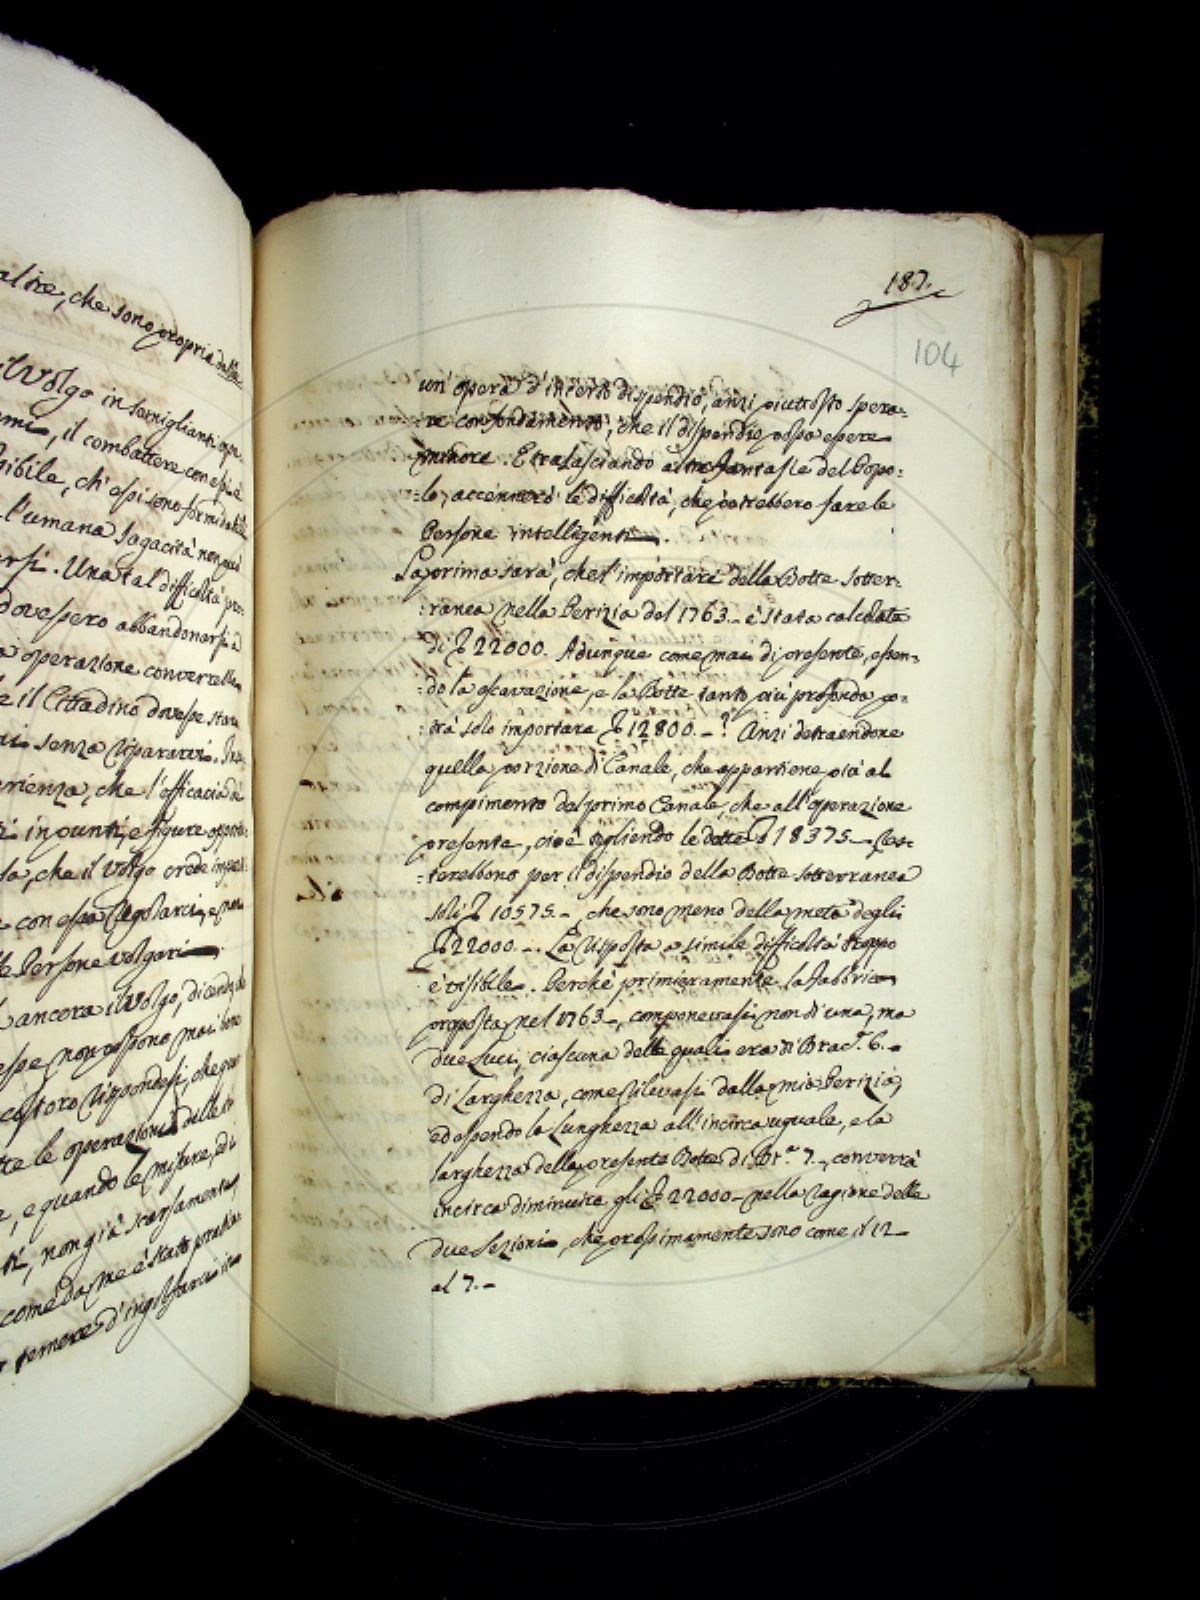 altre, che sono propria della
Volgo in somiglianti ope-
, il combattere con essi è
sibile, ch'essi sono formidabili
l'umana sagacità non può
rsi. Una tal difficoltà pro-
dovessero abbandonarsi a
operazione converrebbe
e il Cittadino dovesse stare
senza ripararvi.
rienza, che l'efficacia di
in punti, e figure oppor-
la, che il Volgo crede impos-
con essa regolarci, e non
Persone volgari
ancora il Volgo, dicendo, che
esse non possono mai bene
costoro rispondesi, che per
te le operazioni delle
e, e quando le misure, ed i
ti, non già scarsamente,
come da me è stato pratica
temere d'ingolfarci in
187.
104
un'opera d'incerto dispendio, anzi piuttosto spera-
re con fondamento, che il dispendio possa essere
minore. E trasciando altre fantasie del Popo:
:lo, accennerò le difficoltà, che potrebbero fare le
Persone intelligenti.
La prima sarà, che l'importare della Botte sotter:
:ranea nella Perizia del 1763. è stata calcolata
di 22000. Adunque come mai di presente, essen:
:do la escavazione, e la Botte tanto più profonda po:
:trà solo importare 12800.-? Anzi detraendone
quella porzione di Canale, che appartiene più al
compimento del primo Canale, che all'operazione
presente, cioè togliendo le dette 18375- res:
:terebbono per il dispendio della Botte sotterranea
soli 10575.-, che sono meno della metà degli
22000-. La risposta a simile difficoltà troppo
è visibile. Perchè primieramente la Fabbrica
proposta nel 1763-, componevasi non di una, ma
due Luci, ciascuna delle quali era di Brac. 6.-
di Larghezza, come rilevasi dalla mia Perizia,
ed essendo la Lunghezza all'incirca uguale, e la
larghezza della presente Botte di Br.a 7-, converrà
incirca diminuire gli 22000- nella ragione delle
due Sezioni, che prossimamente sono come il 12-
al 7.-